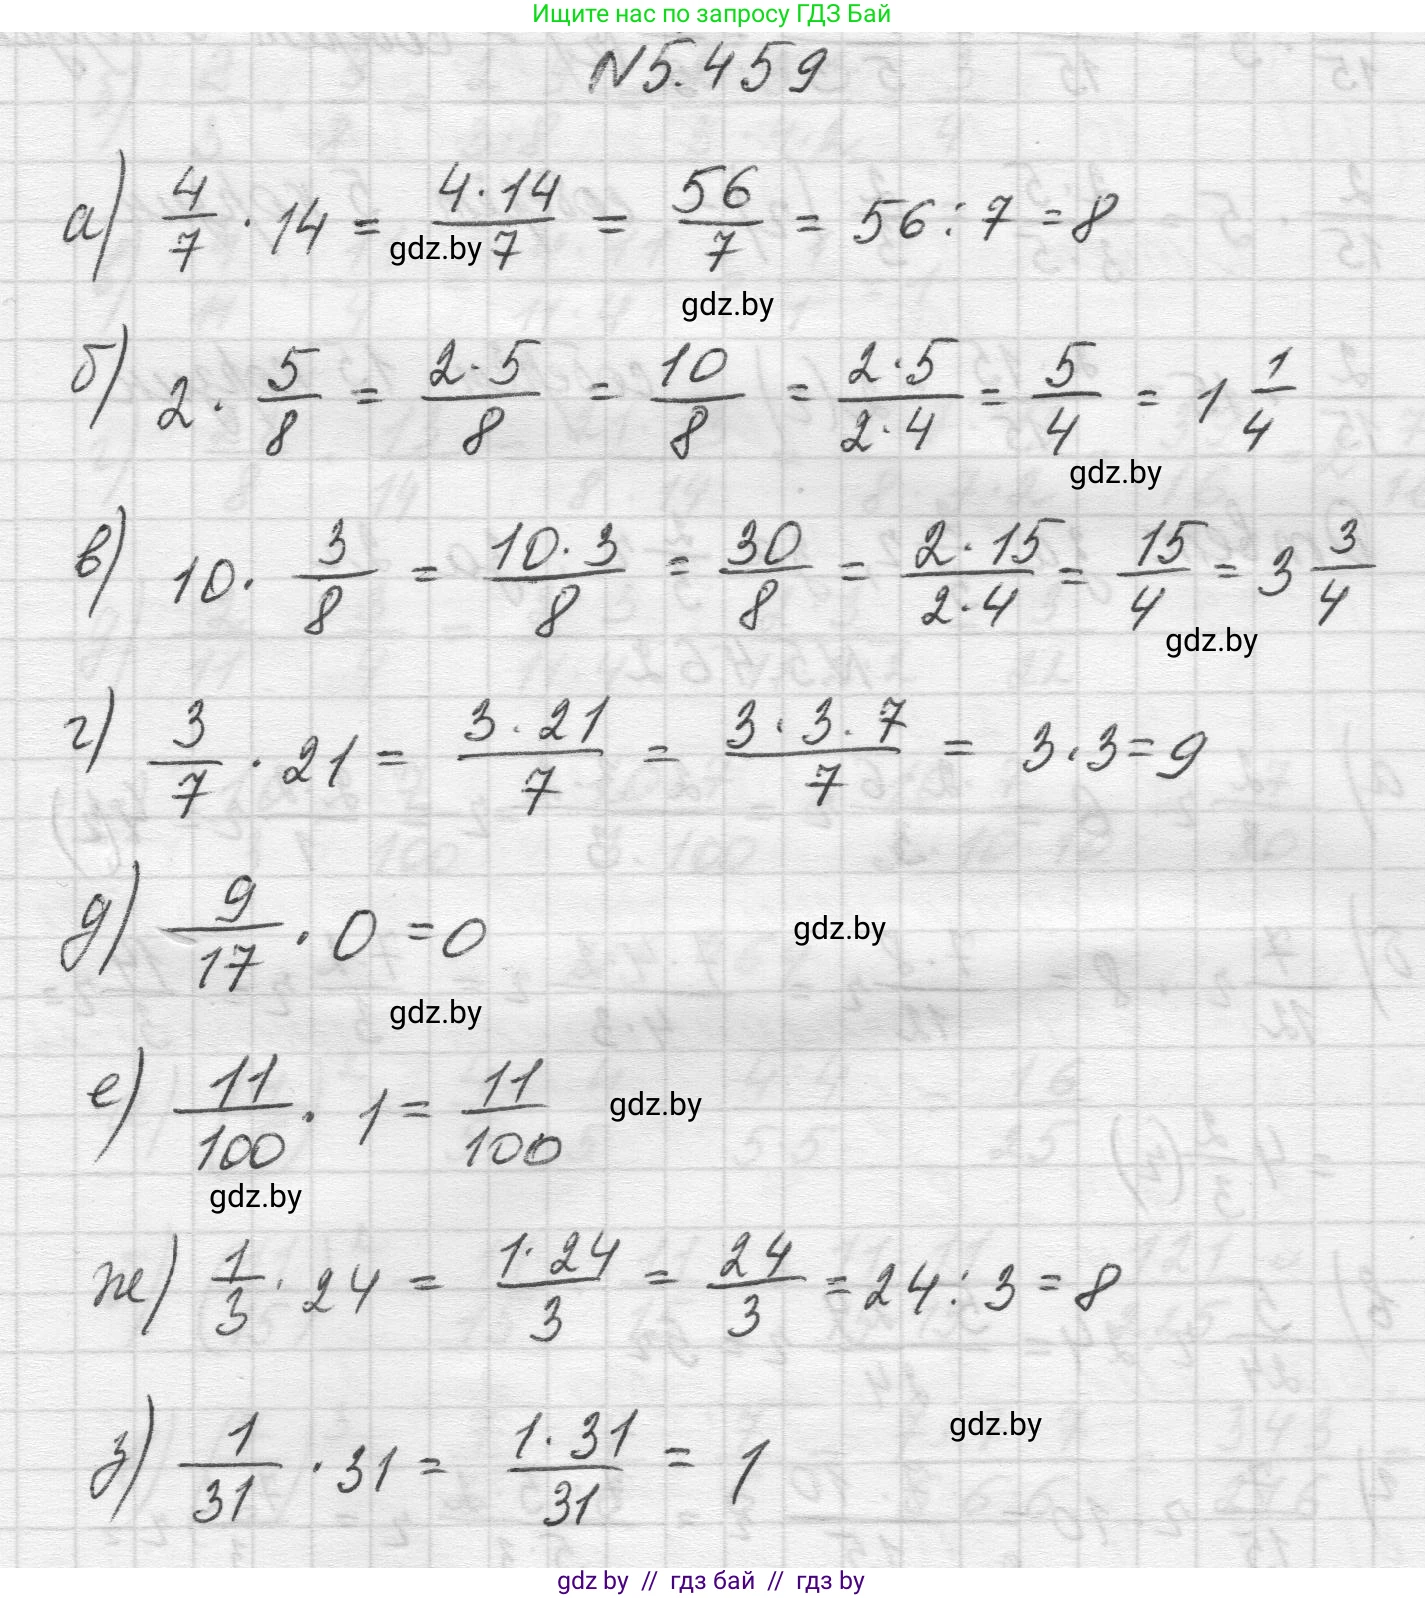 Ищите нас по запросу ГДЗ Бай
N5.459
а) 4/7 · 14 = 4·14/7 = 56/7 = 56:7 = 8
gdz.by
gdz.by
б) 2 · 5/8 = 2·5/8 = 10/8 = 2·5/2·4 = 5/4 = 1 1/4
gdz.by
в) 10 · 3/8 = 10·3/8 = 30/8 = 2·15/2·4 = 15/4 = 3 3/4
gdz.by
г) 3/7 · 21 = 3·21/7 = 3·3·7/7 = 3·3=9
д) 9/17 · 0 = 0
gdz.by
gdz.by
е) 11/100 · 1 = 11/100
gdz.by
gdz.by
ж) 1/3 · 24 = 1·24/3 = 24/3 = 24:3 = 8
з) 1/31 · 31 = 1·31/31 = 1
gdz.by
gdz by // гдз бай // гдз by